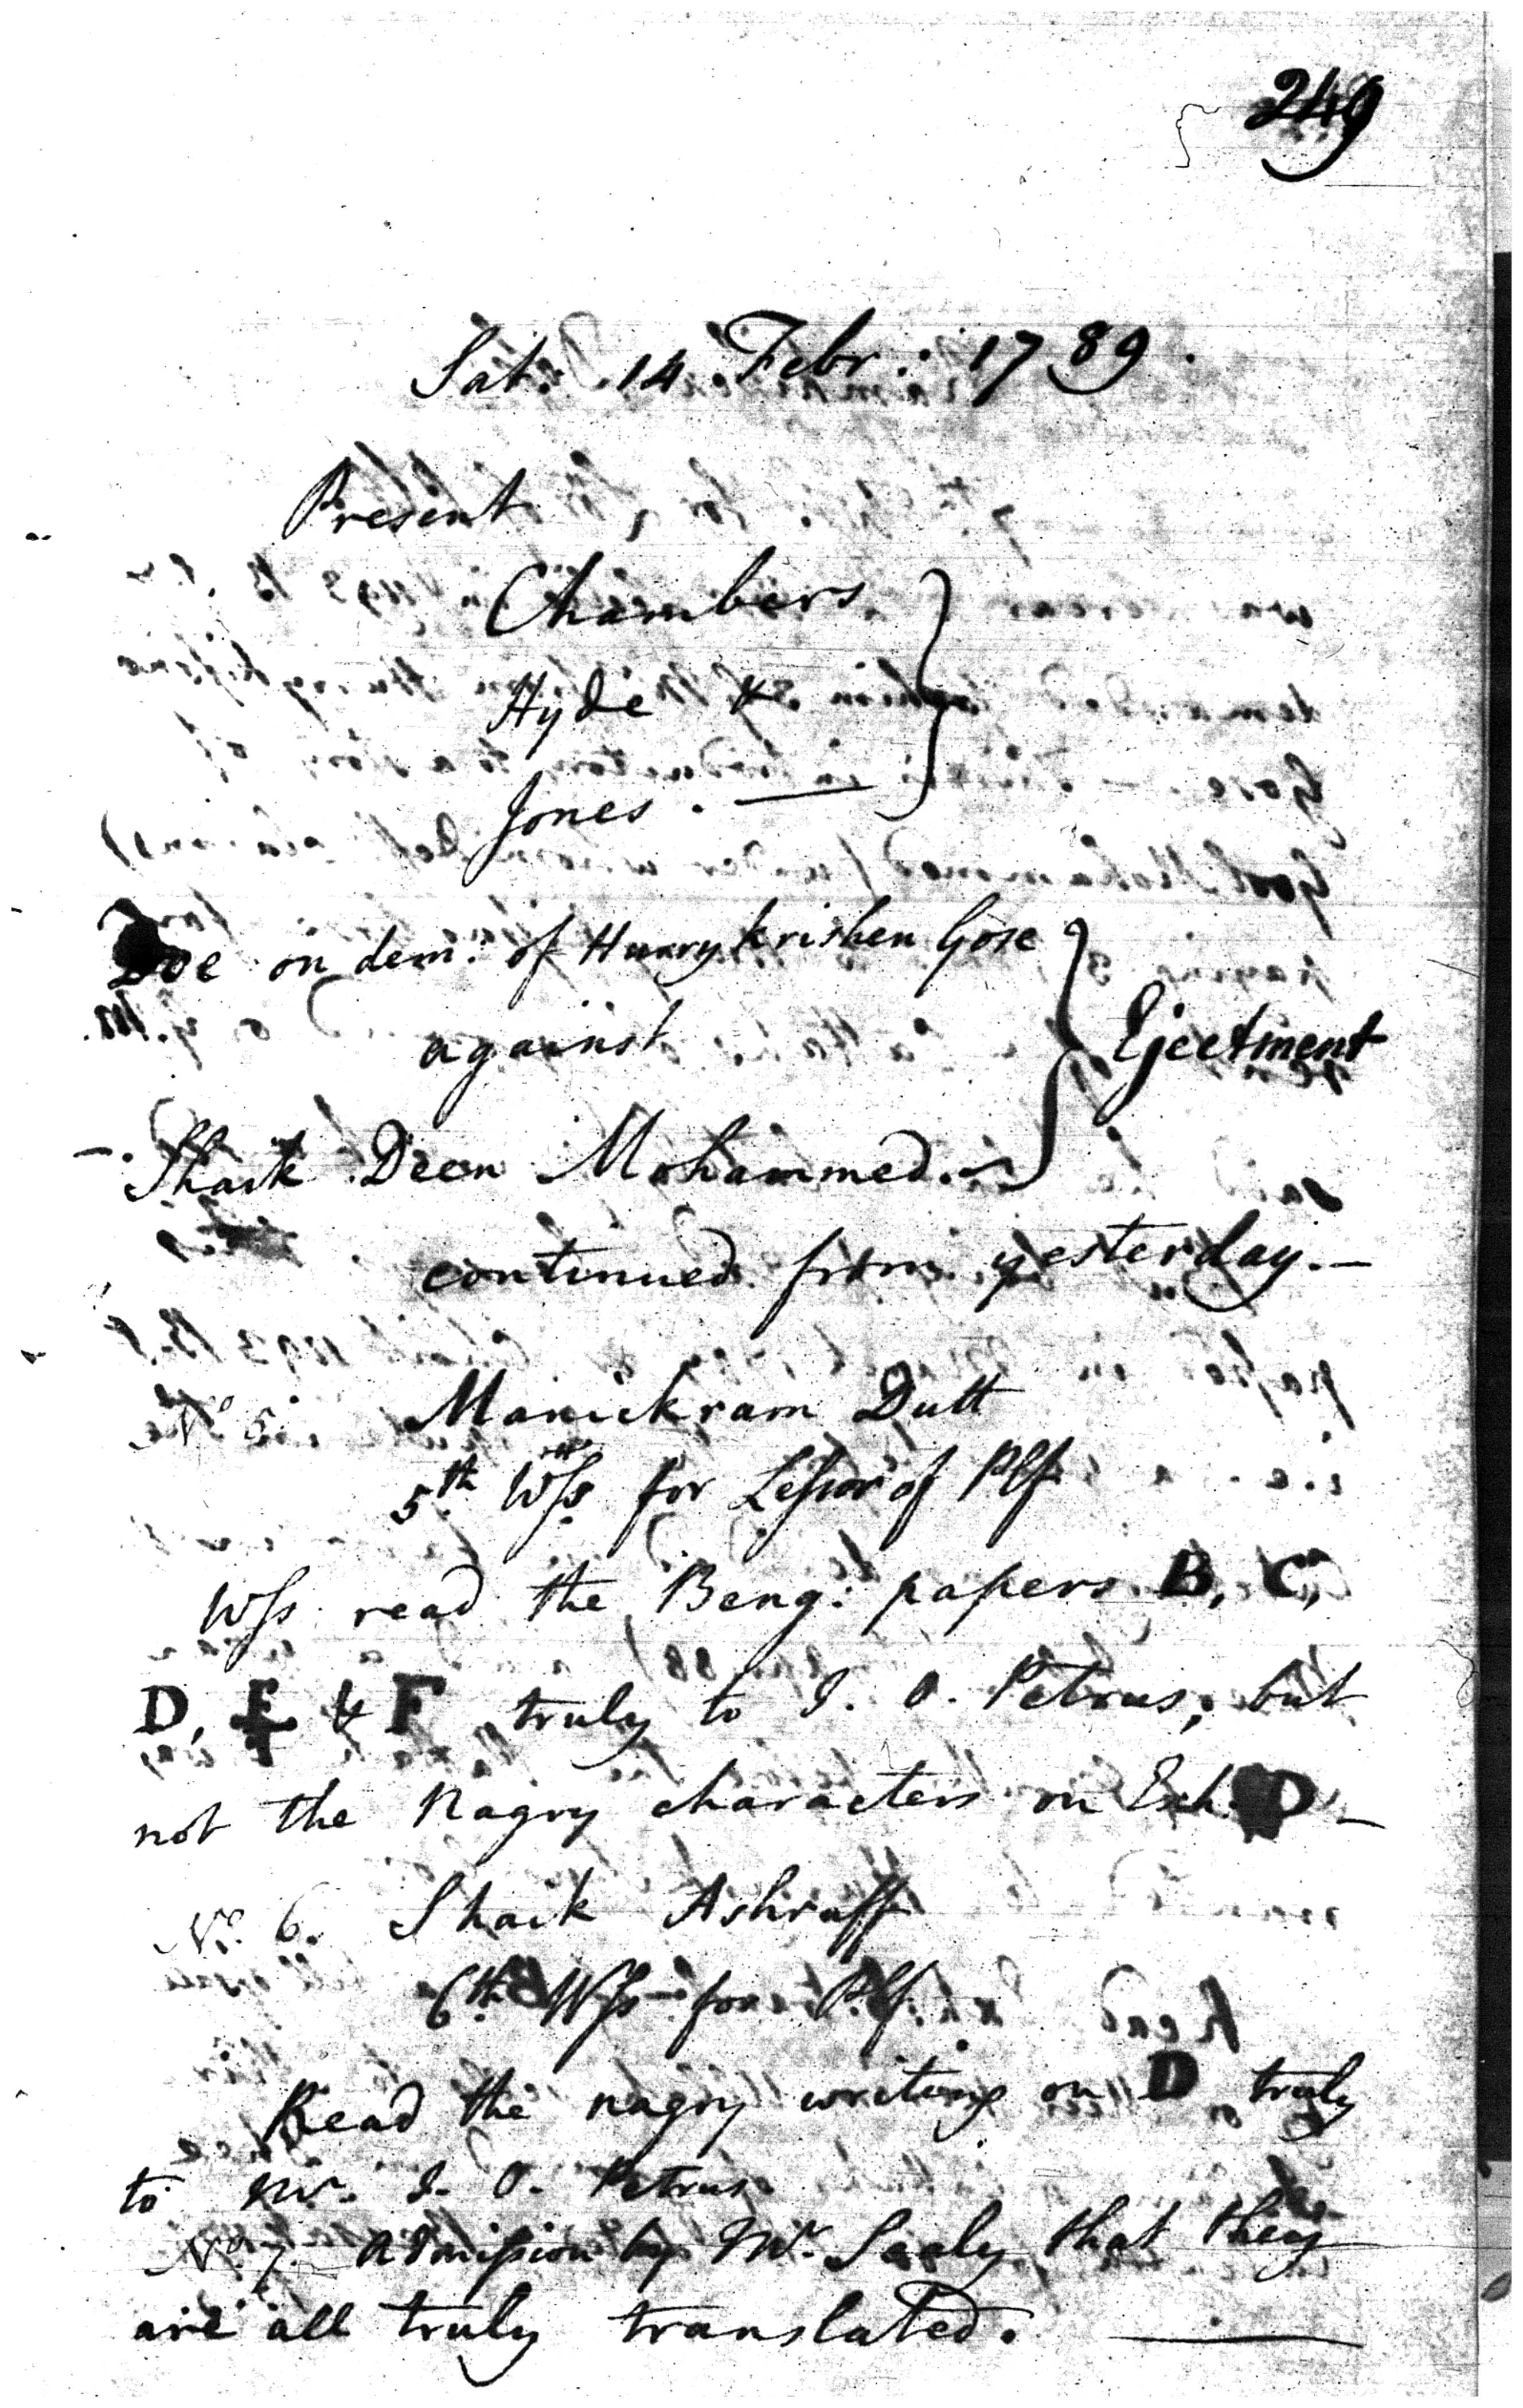 249
Sat: 14 Febr: 1789.
Present
Chambers
Hyde &
Jones. —
Doe on dem: of Hurry Krishen Gose
against
Ejectment
Shaik Deen Mohammed.
continued from yesterday.—
No. 5. Manickram Dutt
5th Wss for Lessor of Plf
Wss read the Beng: papers B, C,
D, E & F truly to J. O. Petrus, but
not the Nagry characters on Exh: D—
No. 6. Shaik Ashruff
6th Wss for Plf.
Read the nagry writing on D truly
to Mr. J. O. Petrus
No. 7. Admission by Mr. Sealy that they
are all truly translated. —